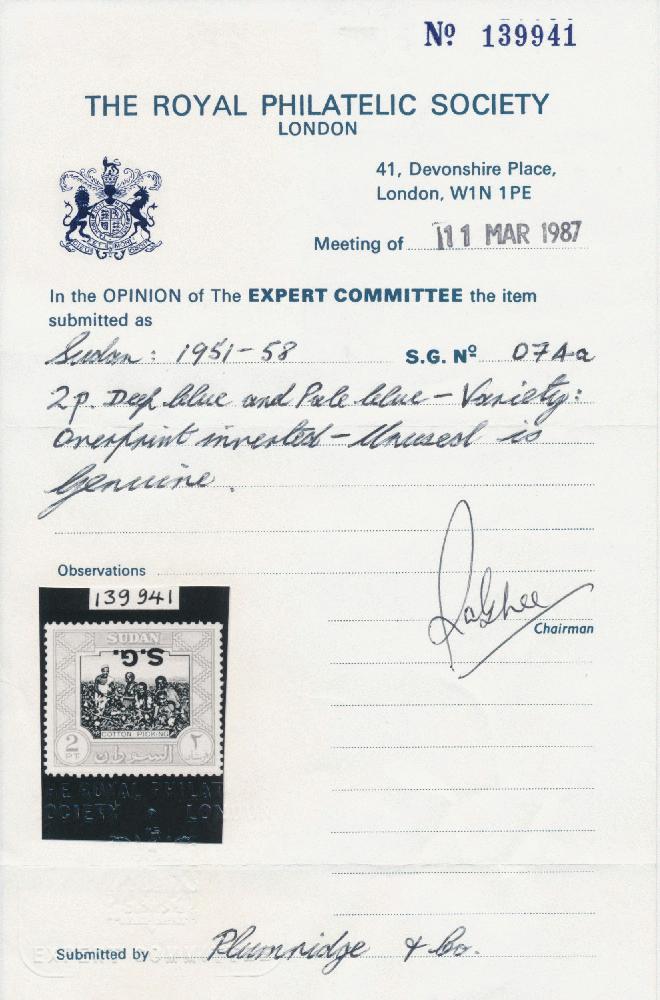 Nº 139941
THE ROYAL PHILATELIC SOCIETY
LONDON
41, Devonshire Place,
London, W1N 1PE
Meeting of 11 MAR 1987
In the OPINION of The EXPERT COMMITTEE the item
submitted as
Sudan: 1951-58 S.G. Nº 074a
2p. Deep blue and Pale blue - Variety:
Overprint inverted - Unused is
Genuine.
Observations
139941
SUDAN
S.G.
COTTON PICKING
2 السودان ٢
PT
HE ROYAL PHILAT
OCIETY LON
Chairman
Submitted by Plumridge & Co.